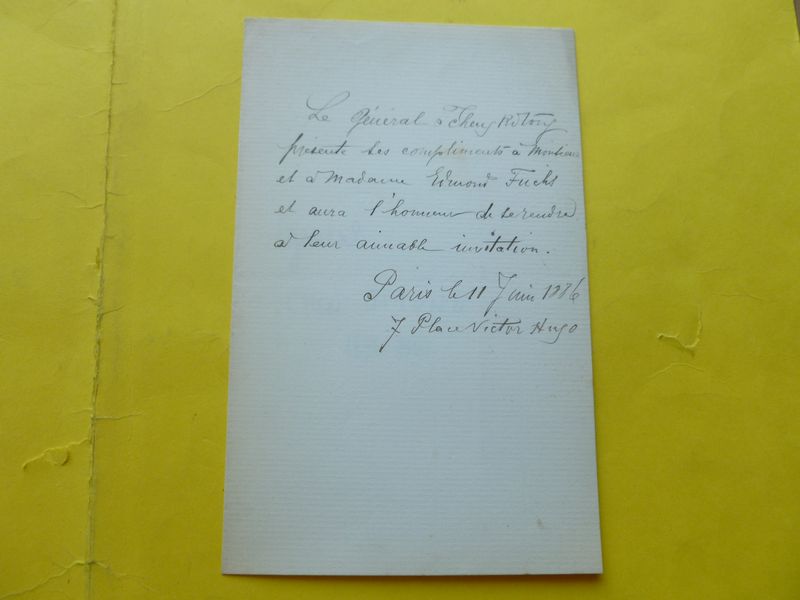 Le Général Tcheng Ki Tong
présente ses compliments à Monsieur
et à Madame Edmond Fuchs
et aura l'honneur de se rendre
à leur aimable invitation.
Paris le 11 Juin 1886
7 Place Victor Hugo